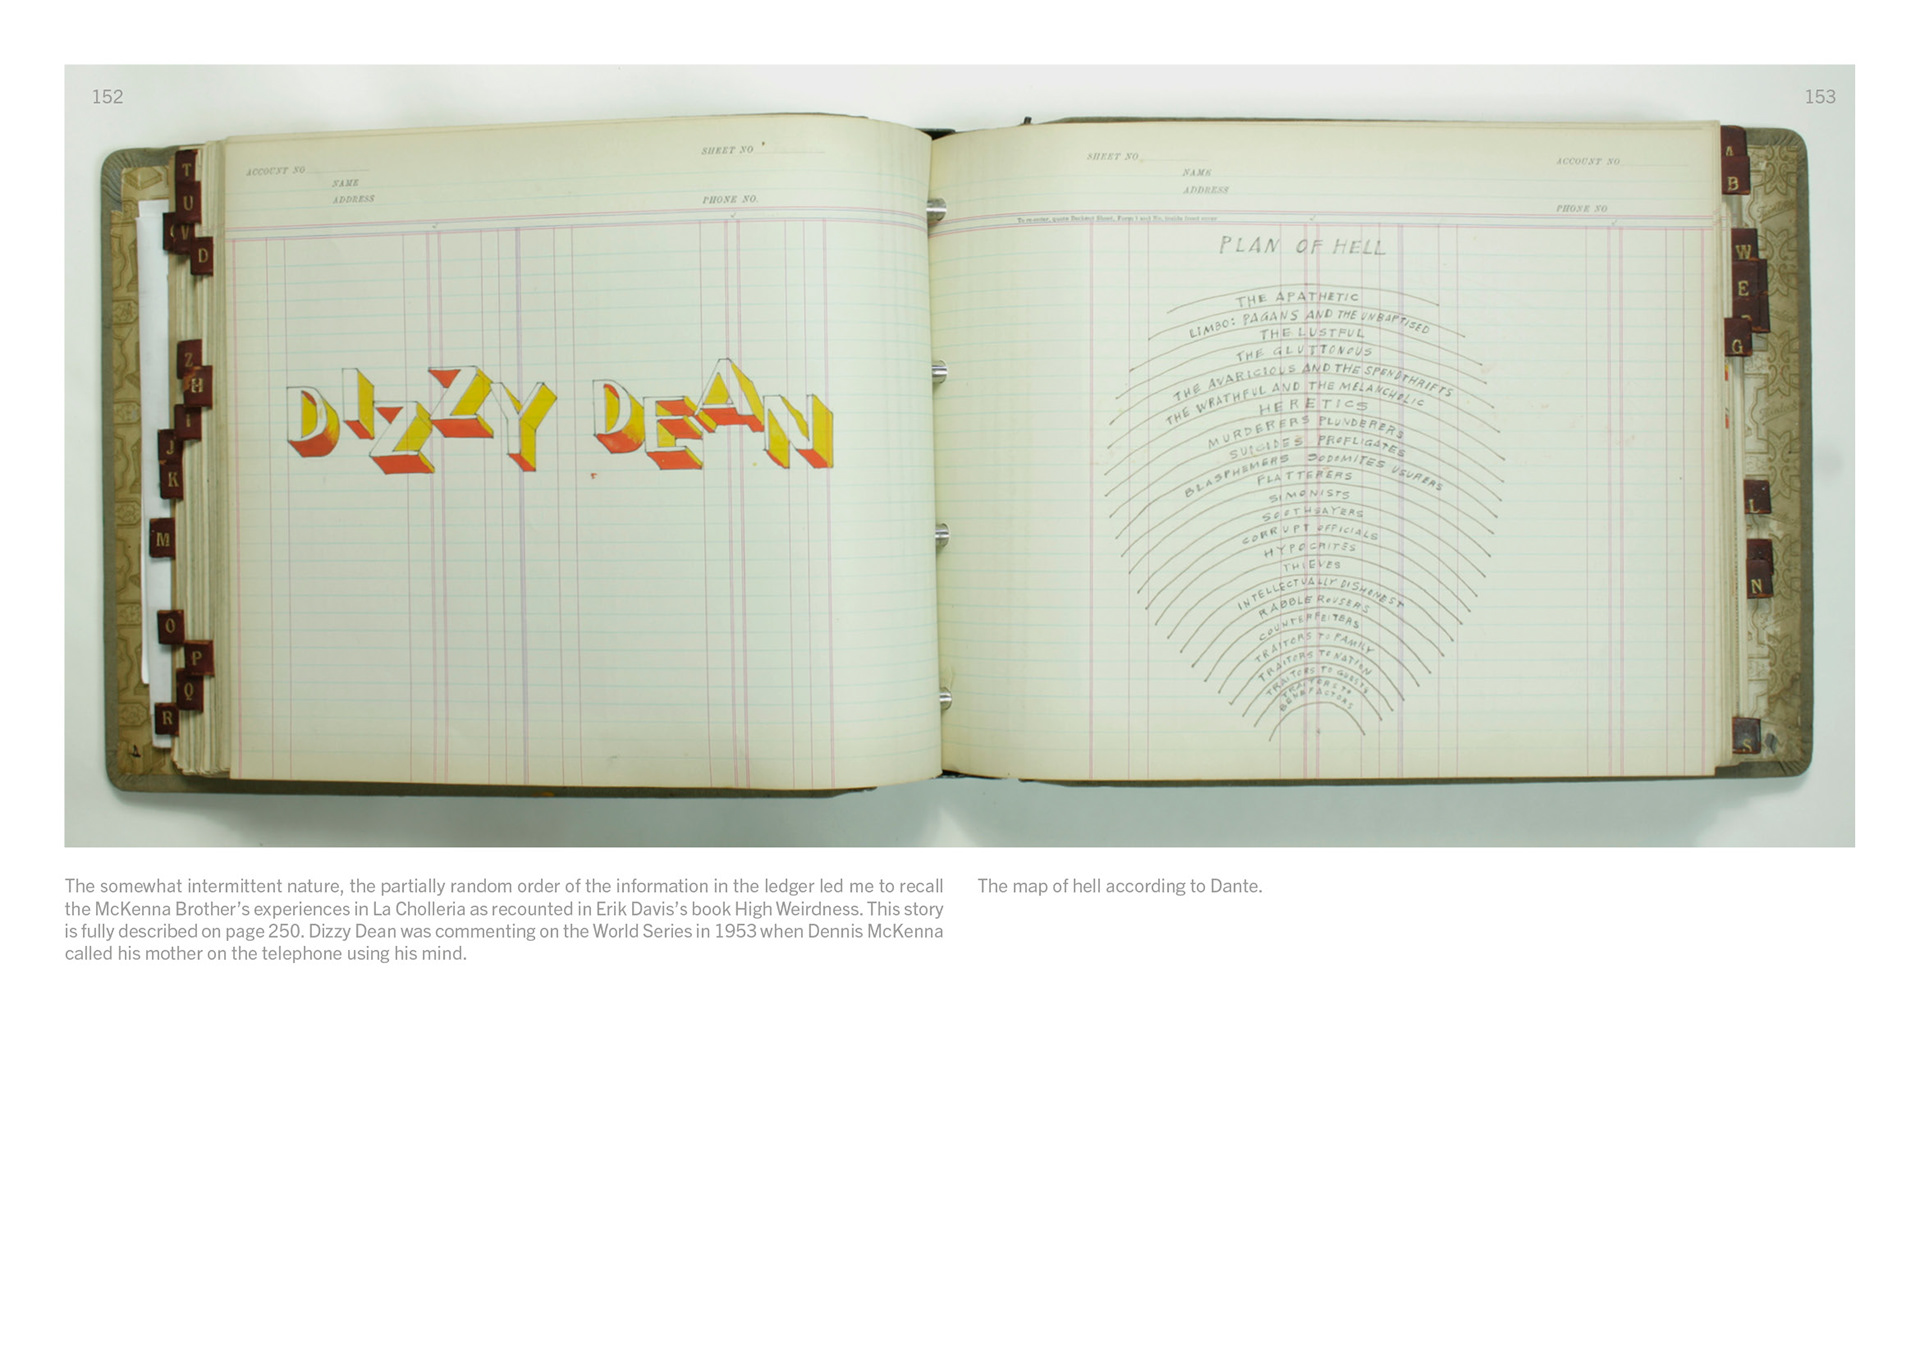 152
153
T
U
V
D
Z
H
I
J
K
M
O
P
Q
R
SHEET NO
ACCOUNT NO
NAME
ADDRESS
PHONE NO.
DIZZY DEAN
SHEET NO.
ACCOUNT NO
NAME
ADDRESS
PHONE NO
PLAN OF HELL
THE APATHETIC
LIMBO: PAGANS AND THE UNBAPTISED
THE LUSTFUL
THE GLUTTONOUS
THE AVARICIOUS AND THE SPENDTHRIFTS
THE WRATHFUL AND THE MELANCHOLIC
HERETICS
MURDERERS PLUNDERERS
SUICIDES PROFLIGATES
BLASPHEMERS SODOMITES USURERS
FLATTERERS
SIMONISTS
SOOTHSAYERS
CORRUPT OFFICIALS
HYPOCRITES
THIEVES
INTELLECTUALLY DISHONEST
RABBLE ROUSERS
COUNTERFEITERS
TRAITORS TO FAMILY
TRAITORS TO NATION
TRAITORS TO GUESTS
TRAITORS TO
BENEFACTORS
A
B
W
E
G
L
N
S
The somewhat intermittent nature, the partially random order of the information in the ledger led me to recall
the McKenna Brother's experiences in La Cholleria as recounted in Erik Davis's book High Weirdness. This story
is fully described on page 250. Dizzy Dean was commenting on the World Series in 1953 when Dennis McKenna
called his mother on the telephone using his mind.
The map of hell according to Dante.